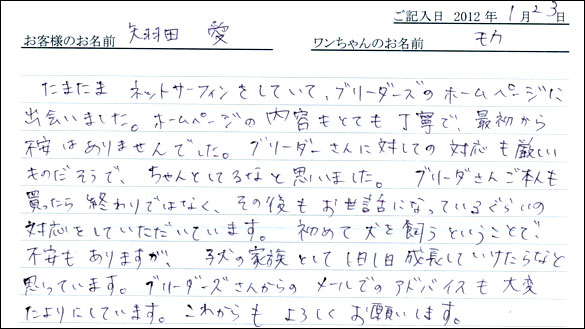 ご記入日 2012 年 1月23日
お客様のお名前 矢羽田 愛 ワンちゃんのお名前 モカ
たまたま ネットサーフィンをしていて、ブリーダーズのホームページに
出会いました。ホームページの内容もとても丁寧で、最初から
不安はありませんでした。ブリーダーさんに対しての対応も厳しい
ものだそうで、ちゃんとしてるなと思いました。 ブリーダさんご本人も
買ったら終わりではなく、その後もお世話になっているぐらいの
対応をしていただいています。 初めて犬を飼うということで、
不安もありますが、子犬の家族として1日1日成長していけたらなと
思っています。ブリーダーズさんからのメールでのアドバイスも大変
たよりにしています。これからも よろしくお願いします。